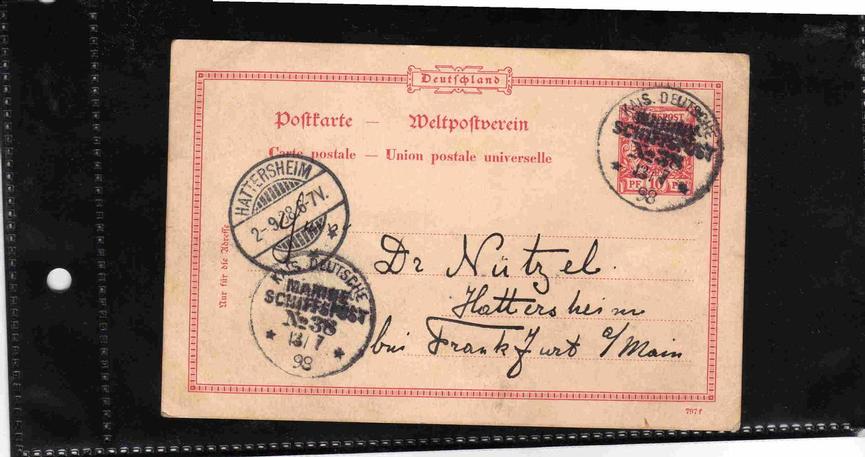 Deutschland
Postkarte — Weltpostverein
Carte postale — Union postale universelle
KAIS. DEUTSCHE
MARINE-
SCHIFFSPOST
No 38
13/7
98
PF 10 PF
HATTERSHEIM
Nur für die Adresse
Dr Nützel
Hattersheim
bei Frankfurt a/Main
KAIS. DEUTSCHE
MARINE-
SCHIFFSPOST
No 38
13/7
98
797f